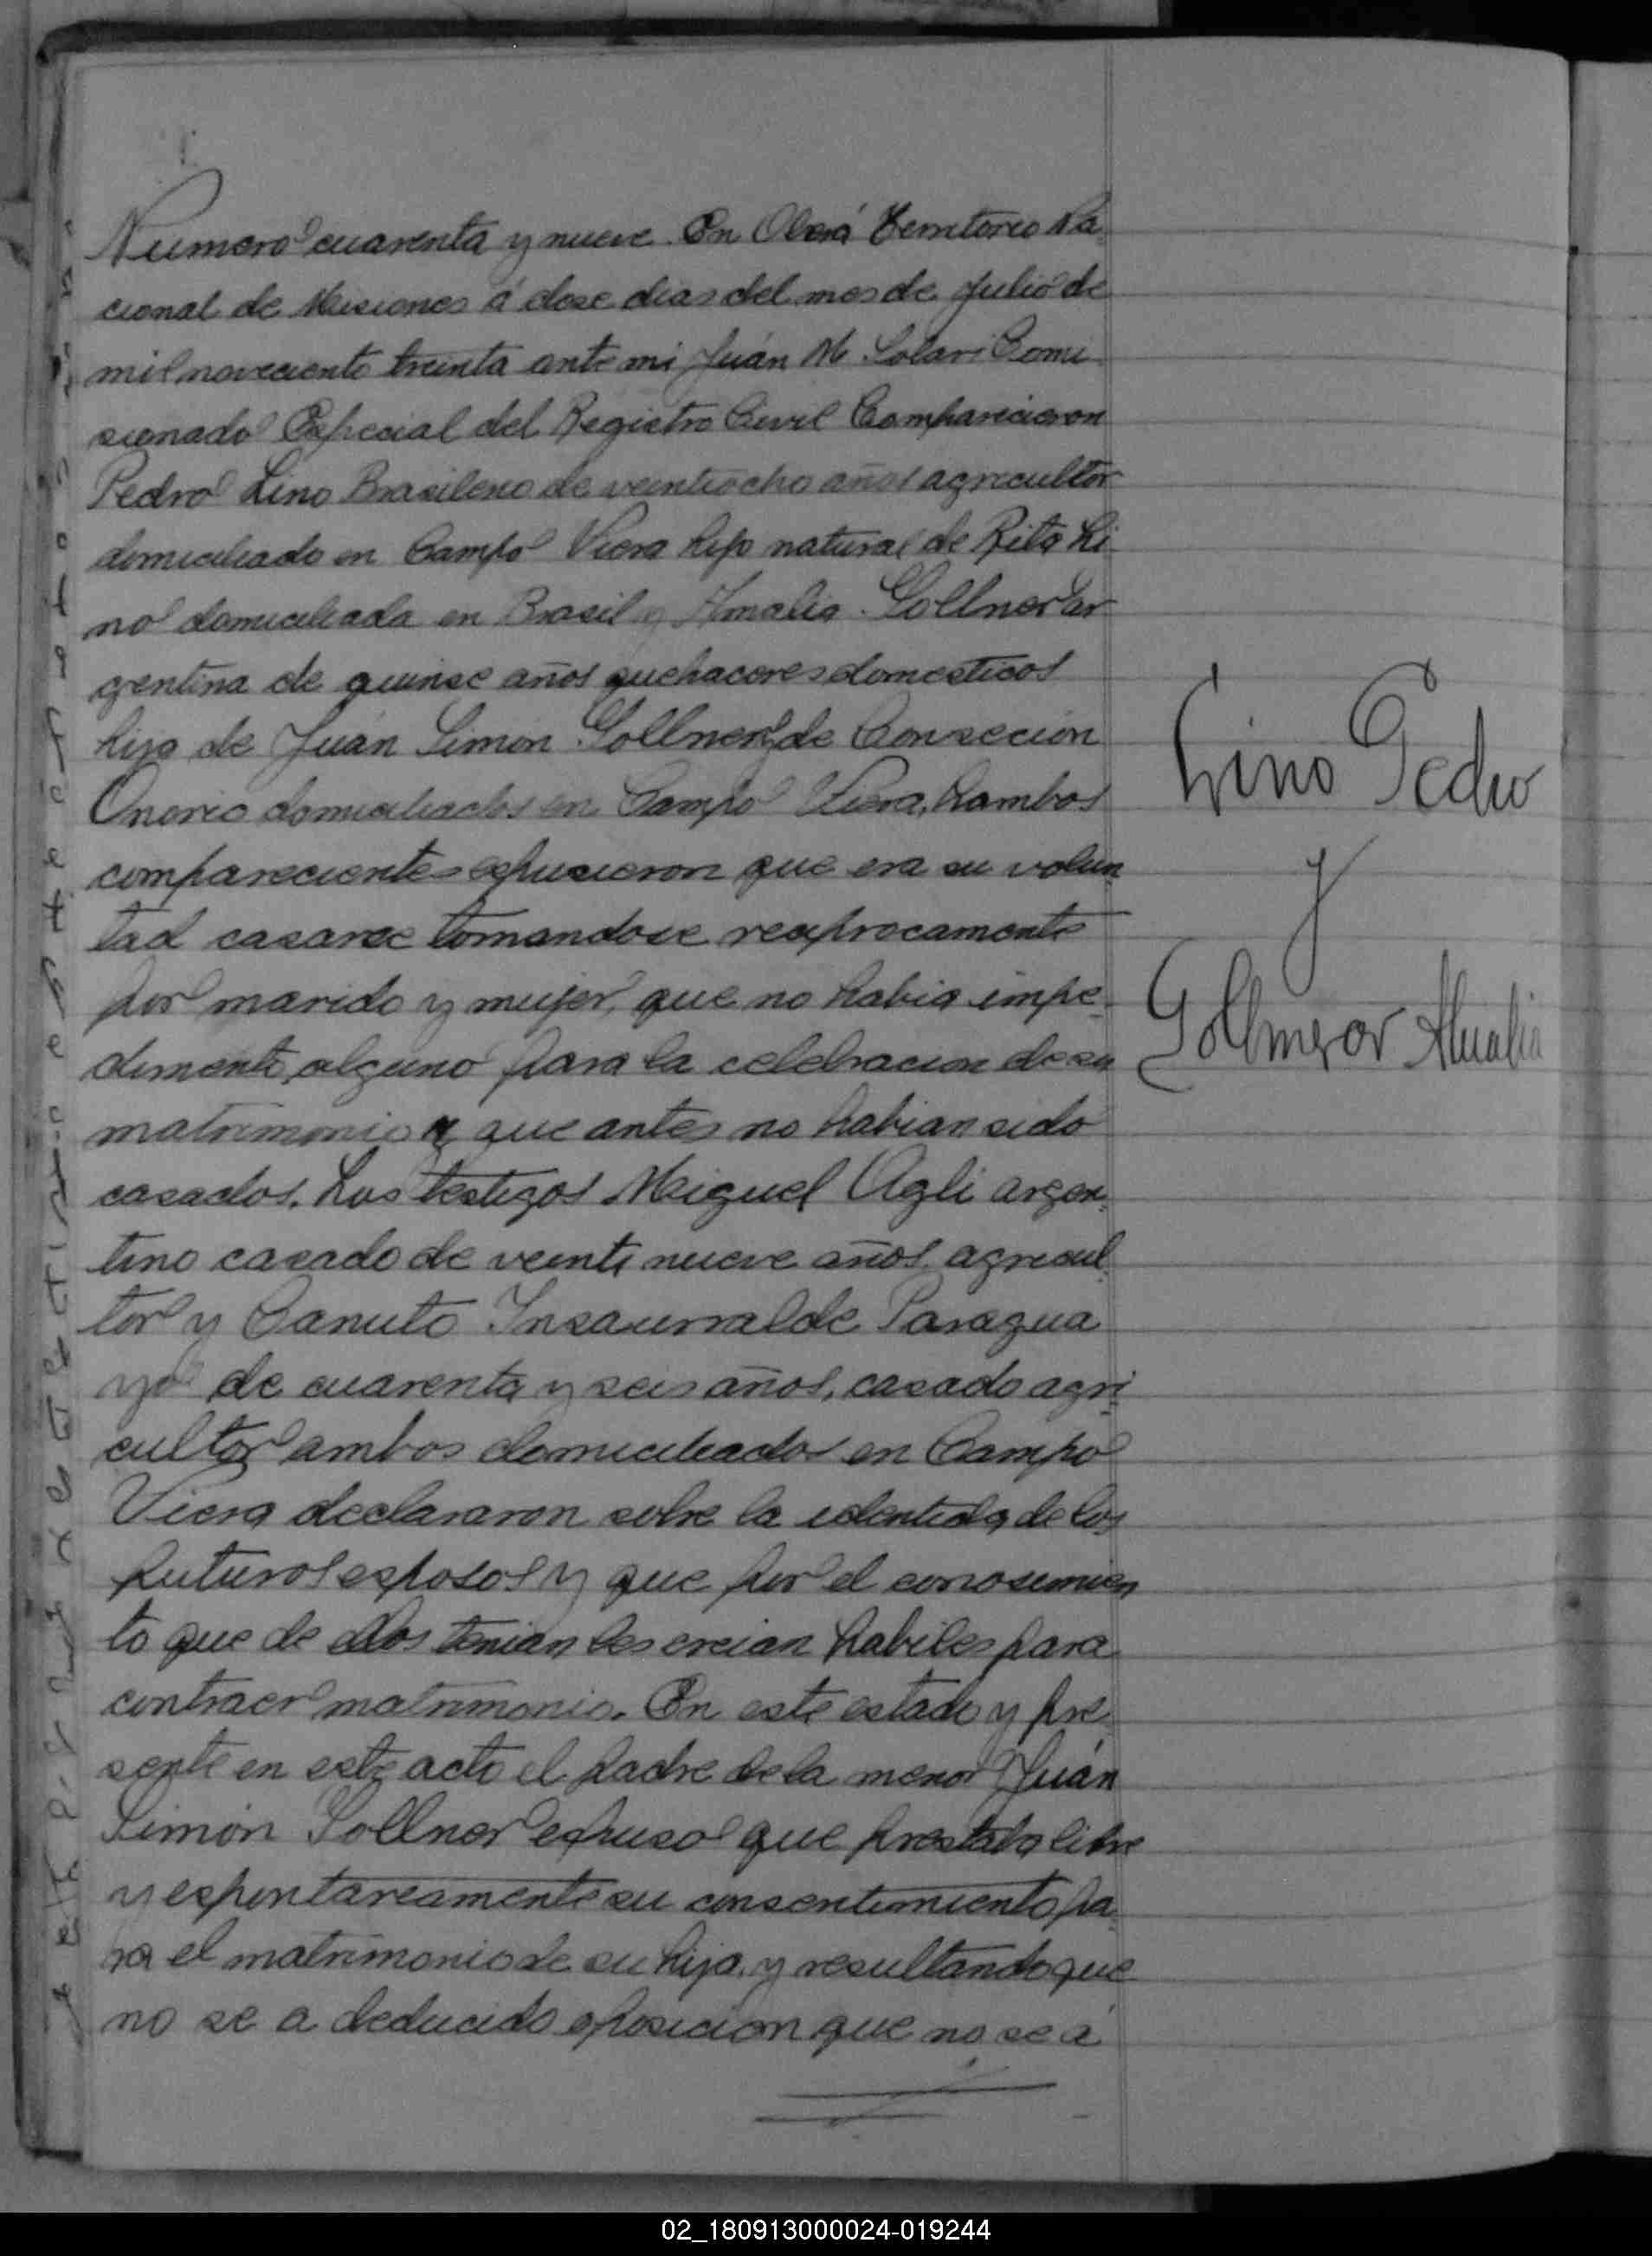 Numero cuarenta y nueve. En Oberá Territorio Na
cional de Misiones á dose dias del mes de Julio de
mil noveciento treinta ante mi Juán M. Solari Comi
sionado Especial del Registro Civil Comparicieron
Pedro Lino Brasileno de veintiocho años agricultor
domiciliado en Campo Viera hijo natural de Rita Li
no domiciliada en Brasil y Amalia Gollner ar
gentina de quinse años quehaceres domesticos
hija de Juán Simón Gollner y de Conseción
Onorio domiciliados en Campo Viera, hambos
compareciente espusieron que era su volun
tad casarse tomandose reciprocamente
por marido y mujer, que no habia impe
dimento alguno para la celebracion de su
matrimonio y que antes no habian sido
casados. Los testigos Miguel Agli argen
tino casado de veinti nueve años agricul
tor y Canuto Insaurralde Paragua
yo de cuarenta y seis años, casado agri
cultor ambos domiciliados en Campo
Viera declararon sobre la identida de los
futuros esposos y que por el conosimien
to que de ellos tenian les creian habiles para
contraer matrimonio. En este estado y pre
sente en este acto el padre de la menor Juán
Simón Gollner espuso que prestaba libre
y espontareamente su consentimiento pa
ra el matrimonio de su hija, y resultando que
no se a deducido oposicion que no se á
Lino Pedro
y
Gollmeor Amalia
02_180913000024-019244